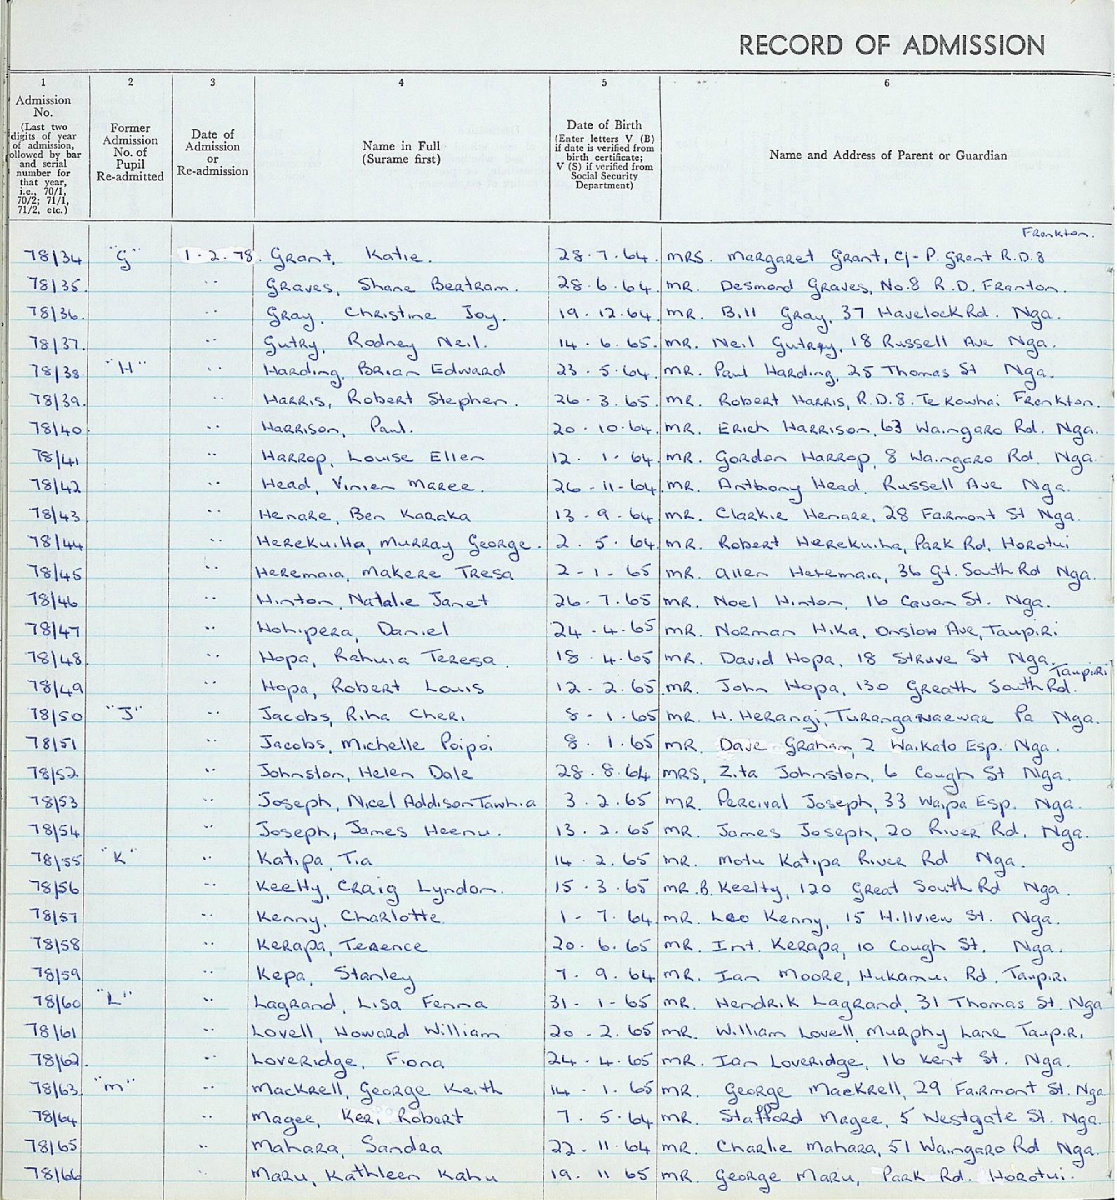 RECORD OF ADMISSION
1 2 3 4 5 6
Admission No. (Last two digits of year of admission, followed by bar and serial number for that year, i.e., 70/1, 70/2; 71/1, 71/2, etc.)
Former Admission No. of Pupil Re-admitted
Date of Admission or Re-admission
Name in Full (Surame first)
Date of Birth (Enter letters V (B) if date is verified from birth certificate; V (S) if verified from Social Security Department)
Name and Address of Parent or Guardian
Frankton.
78/34 "G" 1-2.78. Grant, Katie. 28.7.64. MRS. Margaret Grant, C/- P. Grant R.D.8
78/35. " Graves, Shane Bertram. 28.6.64. MR. Desmond Graves, No.8 R.D. Franton.
78/36. " Gray, Christine Joy. 19.12.64. MR. Bill Gray, 37 Havelock Rd. Nga.
78/37. " Gutry, Rodney Neil. 14.6.65. MR. Neil Gutrey, 18 Russell Ave Nga.
78/38 "H" " Harding, Brian Edward 23.5.64. MR. Paul Harding, 25 Thomas St Nga.
78/39. " Harris, Robert Stephen. 26.3.65. MR. Robert Harris, R.D.8. Te Kowhai Frankton.
78/40 " Harrison, Paul. 20-10-64. MR. Erich Harrison, 63 Waingaro Rd. Nga.
78/41 " Harrop, Louise Ellen 12.1.64. MR. Gordon Harrop, 8 Waingaro Rd. Nga.
78/42 " Head, Vivien Maree. 26-11-64. MR. Anthony Head. Russell Ave Nga.
78/43 " Henare, Ben Karaka 13-9-64 MR. Clarkie Henare, 28 Fairmont St Nga.
78/44 " Herekuiha, Murray George. 2.5.64. MR. Robert Herekuiha, Park Rd, Horotui
78/45 " Heremaia, Makere Tresa 2-1-65 MR. Allen Heremaia, 36 Gt. South Rd Nga.
78/46 " Hinton, Natalie Janet 26.7.65 MR. Noel Hinton, 16 Cavan St. Nga.
78/47 " Hohipera, Daniel 24-4.65 MR. Norman Hika, Onslow Ave, Taupiri
78/48. " Hopa, Rahuia Teresa. 18.4.65 MR. David Hopa, 18 Struve St Nga.
Taupiri
78/49 " Hopa, Robert Louis 12-2.65 MR. John Hopa, 130 Greath South Rd.
78/50 "J" " Jacobs, Riha Cheri 8-1.65 MR. H. Herangi, Turangawaewae Pa Nga.
78/51 Jacobs, Michelle Poipoi 8.1.65 MR. Dave Graham, 2 Waikato Esp. Nga.
78/52 " Johnston, Helen Dale 28.8.64 MRS, Zita Johnston, 6 Cough St Nga.
78/53 " Joseph, Nicel Addison Tawhia 3.2.65 MR. Percival Joseph, 33 Waipa Esp. Nga.
78/54 " Joseph, James Heenu. 13.2.65 MR. James Joseph, 20 River Rd, Nga.
78/55 "K" " Katipa, Tia 14.2.65 MR. Motu Katipa River Rd Nga.
78/56 " Keelty, Craig Lyndon. 15.3.65 MR. B. Keelty, 120 Great South Rd Nga.
78/57 " Kenny, Charlotte. 1-7.64 MR. Leo Kenny, 15 Hillview St. Nga.
78/58 " Kerapa, Terence 20.6.65 MR. Int. Kerapa, 10 Cough St. Nga.
78/59 " Kepa, Stanley 7.9.64 MR. Ian Moore, Hukanui Rd, Taupiri
78/60 "L" " Lagrand, Lisa Fenna 31-1-65 MR. Hendrik Lagrand, 31 Thomas St. Nga
78/61 " Lovell, Howard William 20-2.65 MR. William Lovell, Murphy Lane Taupiri
78/62. " Loveridge, Fiona 24-4.65 MR. Ian Loveridge, 16 Kent St. Nga.
78/63. "M" " Mackrell, George Keith 14-1.65 MR. George Mackrell, 29 Fairmont St. Nga
78/64 " Magee, Keri Robert 7.5.64 MR. Stafford Magee, 5 Westgate St. Nga.
78/65 " Mahara, Sandra 22.11.64 MR. Charlie Mahara, 51 Waingaro Rd Nga.
78/66 " Maru, Kathleen Kahu 19.11.65 MR. George Maru, Park Rd. Horotui.